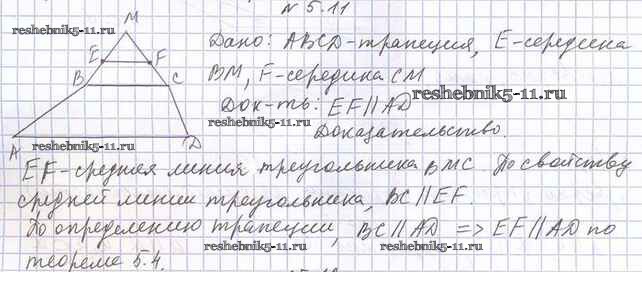 N 5.11
M
reshebnik5-11.ru
Дано: ABCD-трапеция, E-середина
E F
BM, F-середина CM
B C
Док-ть: EF//AD
reshebnik5-11.ru
Доказательство.
A D
reshebnik5-11.ru
EF-средняя линия треугольника BMC. По свойству
средней линии треугольника, BC//EF.
По определению трапеции, BC//AD => EF//AD по
reshebnik5-11.ru reshebnik5-11.ru
теореме 5.4.